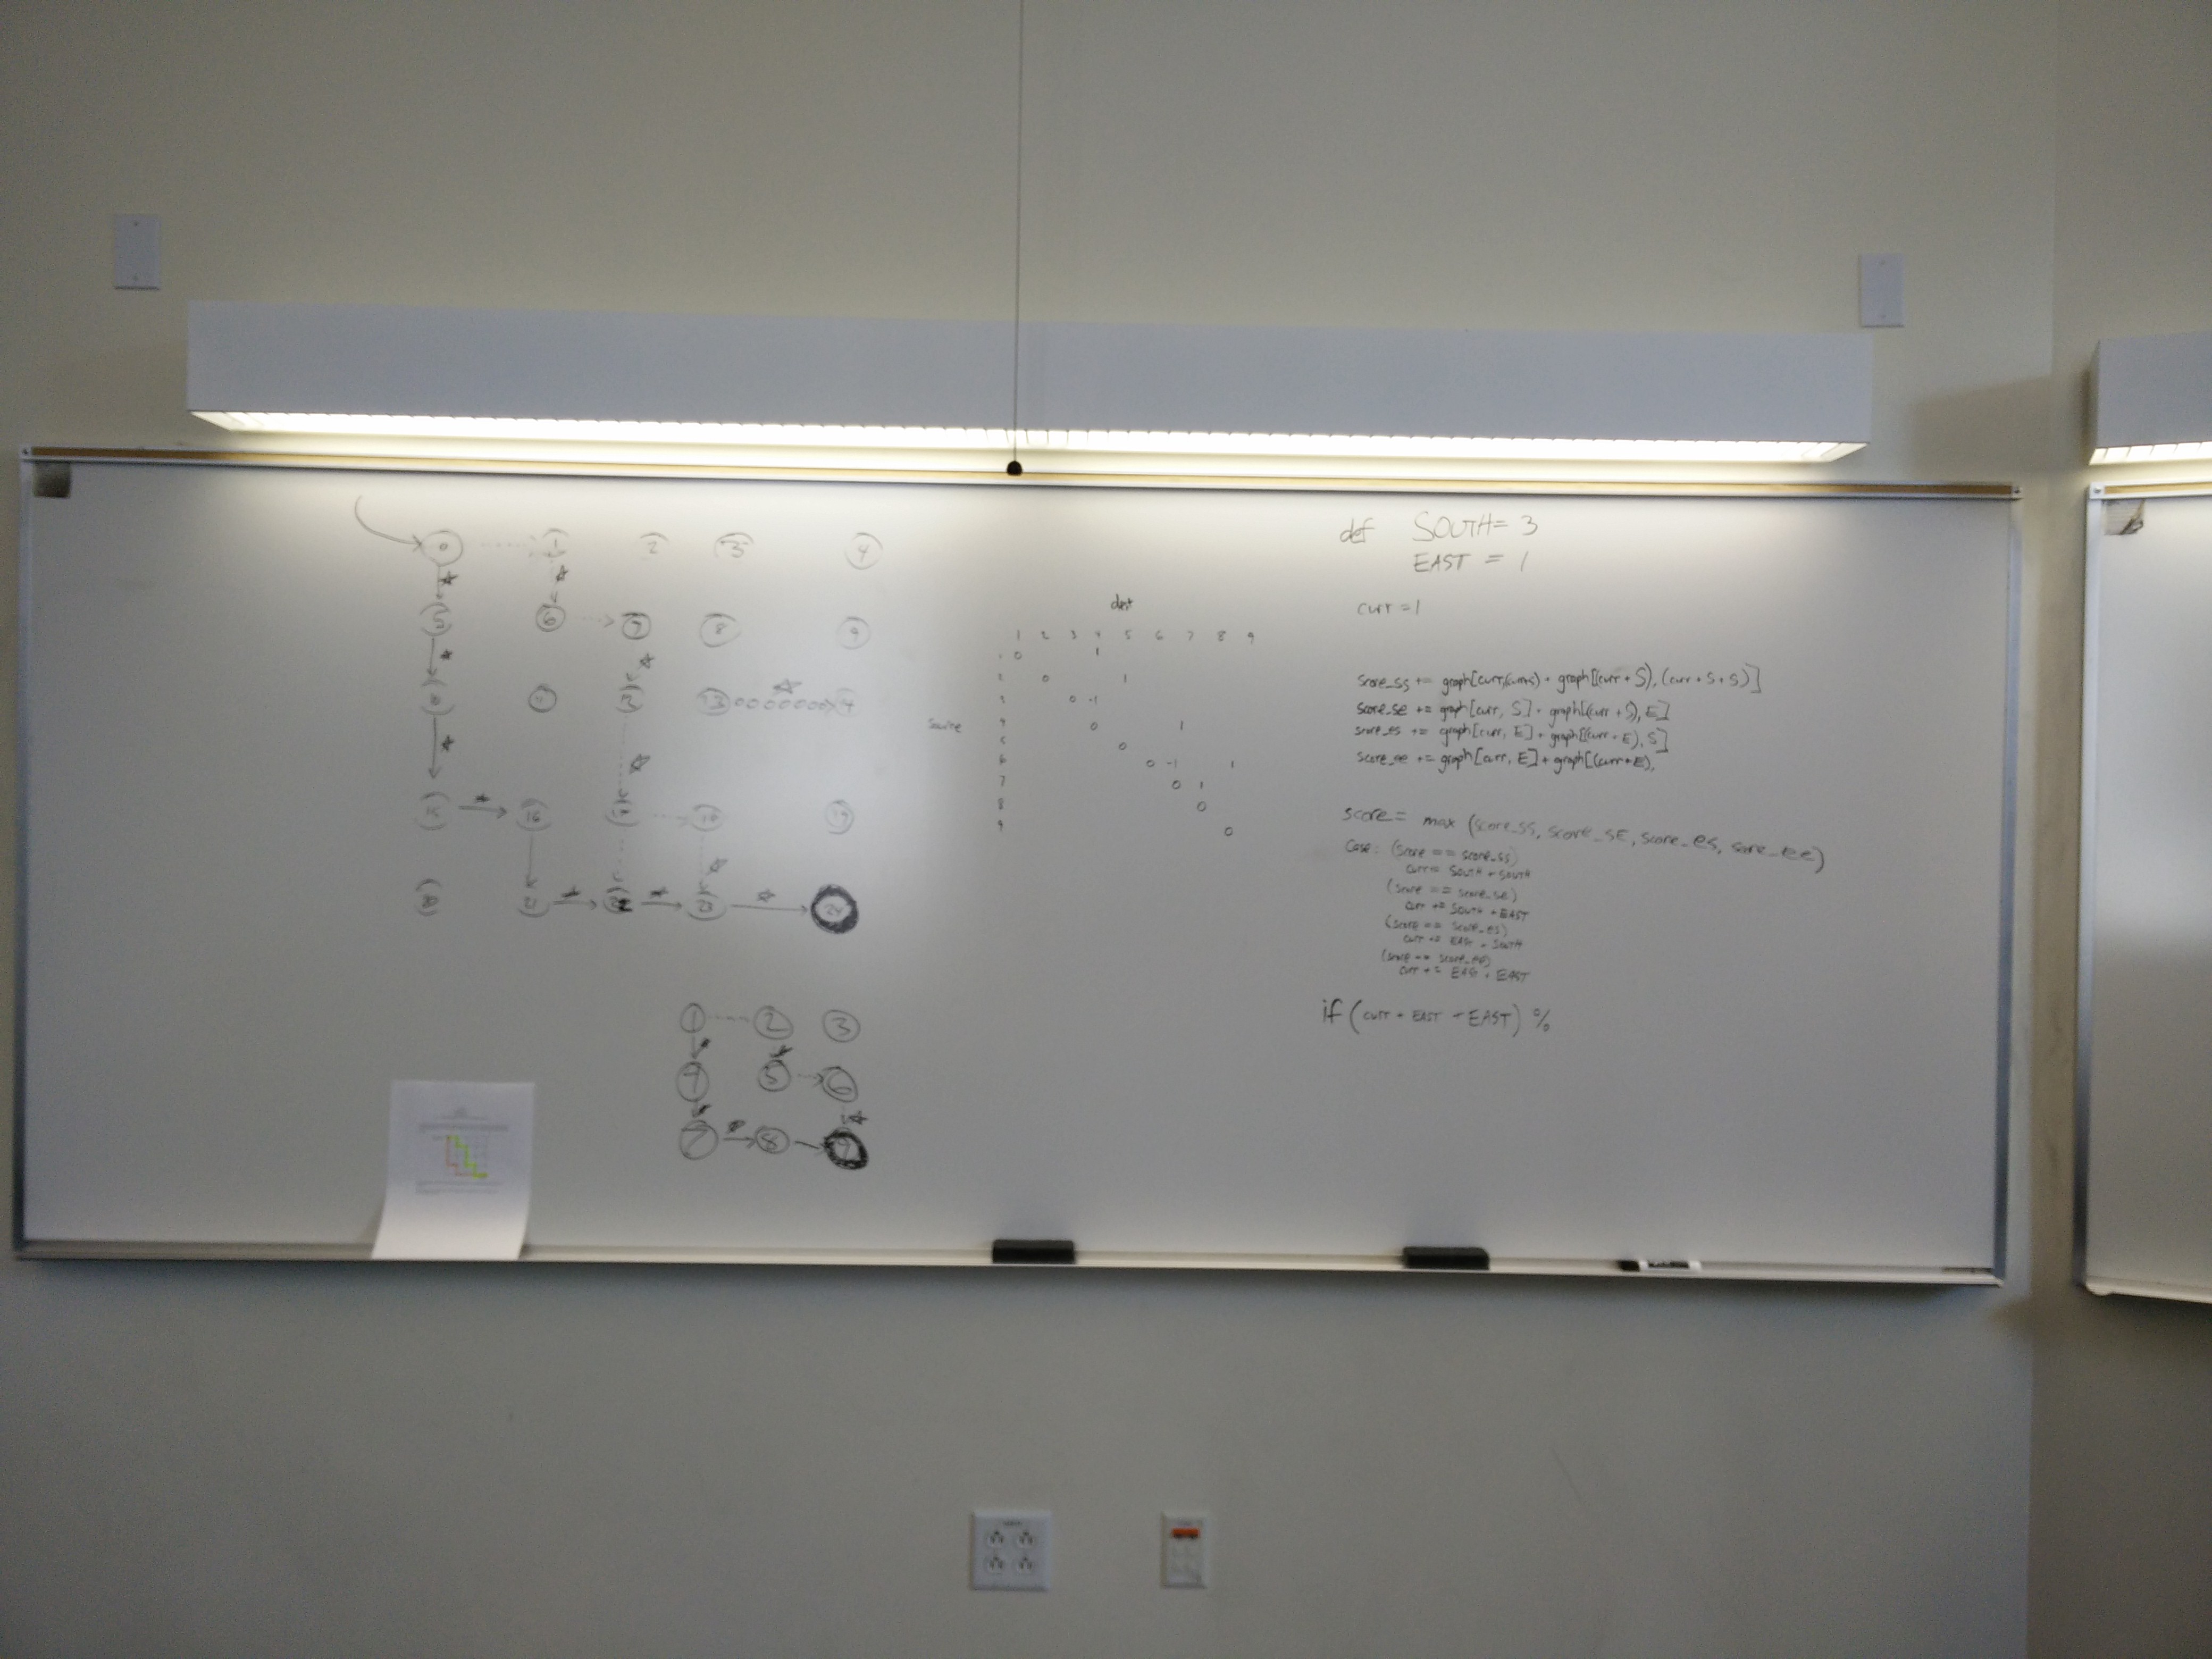 0 1 2 3 4
5 6 7 8 9
13
16 18 19
21 23 24
1 2 3
4 5 6
7 8 9
dest
1 2 3 4 5 6 7 8 9
1 0 1
2 0 1
3 0 -1
source 4 0 1
5 0
6 0 -1 1
7 0 1
8 0
9 0
def SOUTH = 3
EAST = 1
curr = 1
score_ss += graph[curr,(curr+S) + graph[(curr + S), (curr + S + S)]
score_se += graph[curr, S] + graph[(curr + S), E]
score_es += graph[curr, E] + graph[(curr + E), S]
score_ee += graph[curr, E] + graph[(curr + E),
score = max (score_ss, score_SE, score_es, score_ee)
Case: (score == score_ss)
curr = SOUTH + SOUTH
(score == score_se)
curr += SOUTH + EAST
(score == score_es)
curr += EAST + SOUTH
(score == score_ee)
curr += EAST + EAST
if (curr + EAST + EAST) %